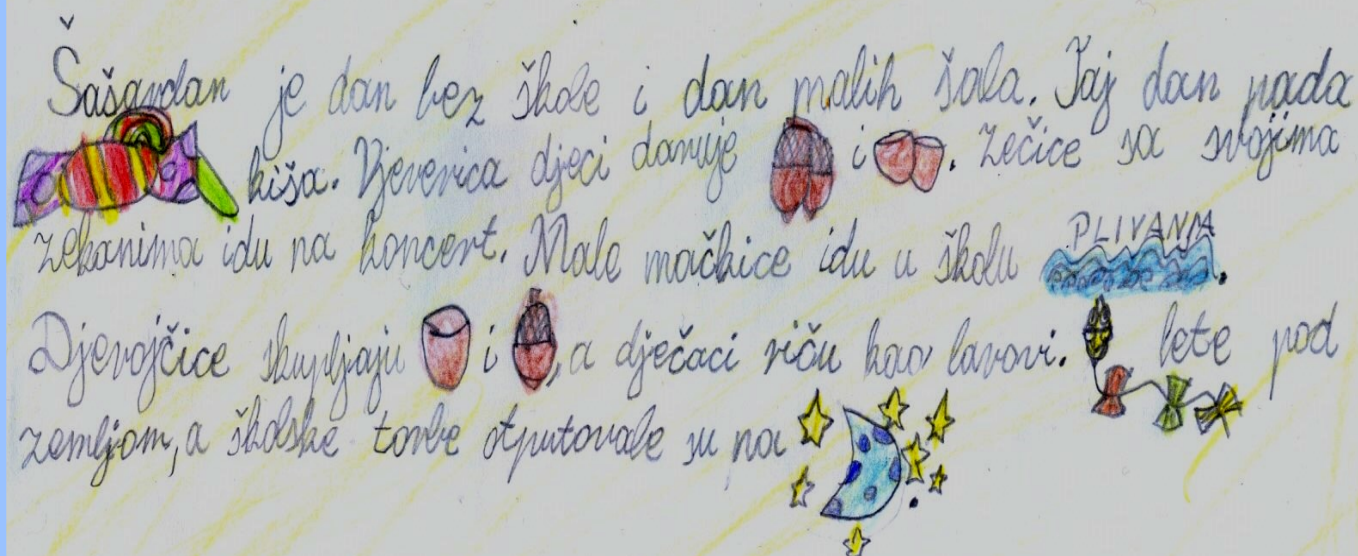 Šašavdan je dan bez škole i dan malih šala. Taj dan pada
kiša. Vjeverica djeci daruje i . Zečice sa svojima
zekanima idu na koncert. Male mačkice idu u školu PLIVANJA.
Djevojčice skupljaju i , a dječaci riču kao lavovi. lete pod
zemljom, a školske torbe otputovale su na .